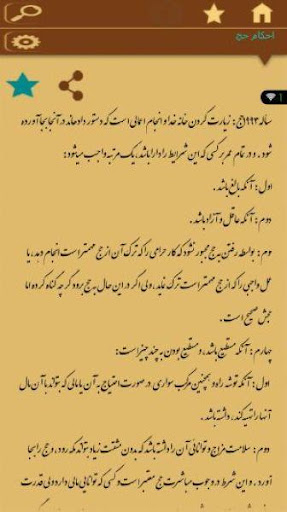 احکام حج
مساله ۱۹۹۳ حج: زیارت کردن خانه خدا و انجام اعمالی است که دستور داده‌اند در آنجا بجا آورده
شود. و در تمام عمر بر کسی که این شرایط را دارا باشد، یک مرتبه واجب میشود:
اول: آنکه بالغ باشد.
دوم: آنکه عاقل و آزاد باشد.
سوم: بواسطه رفتن به حج مجبور نشود که کار حرامی را که ترک آن از حج مهمتر است انجام دهد، یا
عمل واجبی را که از حج مهمتر است ترک نماید، ولی اگر در این حال به حج برود گرچه گناه کرده اما
حجش صحیح است.
چهارم: آنکه مستطیع باشد، و مستطیع بودن به چند چیز است:
اول: آنکه توشه راه و همچنین مرکب سواری در صورت احتیاج به آن یا مالی که بتواند با آن مال
آنها را تهیه کند، داشته باشد.
دوم: سلامت مزاج و توانائی آن را داشته باشد که بدون مشقت زیاد بتواند مکه رود، و حج را بجا
آورد. و این شرط در وجوب مباشرت حج معتبر است و کسی که توانایی مالی دارد ولی قدرت